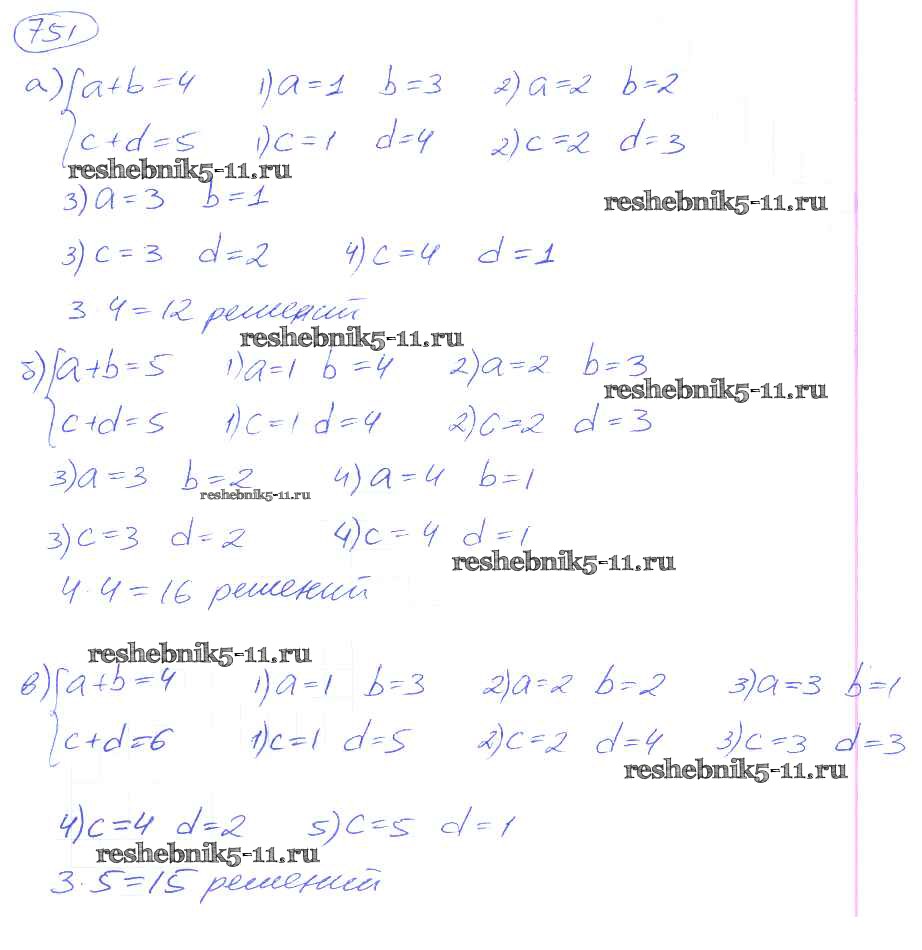 751
а) { a+b=4 1) a=1 b=3 2) a=2 b=2
c+d=5 1) c=1 d=4 2) c=2 d=3
reshebnik5-11.ru
3) a=3 b=1 reshebnik5-11.ru
3) c=3 d=2 4) c=4 d=1
3 4=12 решений
reshebnik5-11.ru
б) { a+b=5 1) a=1 b=4 2) a=2 b=3
reshebnik5-11.ru
c+d=5 1) c=1 d=4 2) c=2 d=3
3) a=3 b=2 4) a=4 b=1
reshebnik5-11.ru
3) c=3 d=2 4) c=4 d=1
reshebnik5-11.ru
4·4=16 решений
reshebnik5-11.ru
в) { a+b=4 1) a=1 b=3 2) a=2 b=2 3) a=3 b=1
c+d=6 1) c=1 d=5 2) c=2 d=4 3) c=3 d=3
reshebnik5-11.ru
4) c=4 d=2 5) c=5 d=1
reshebnik5-11.ru
3·5=15 решений